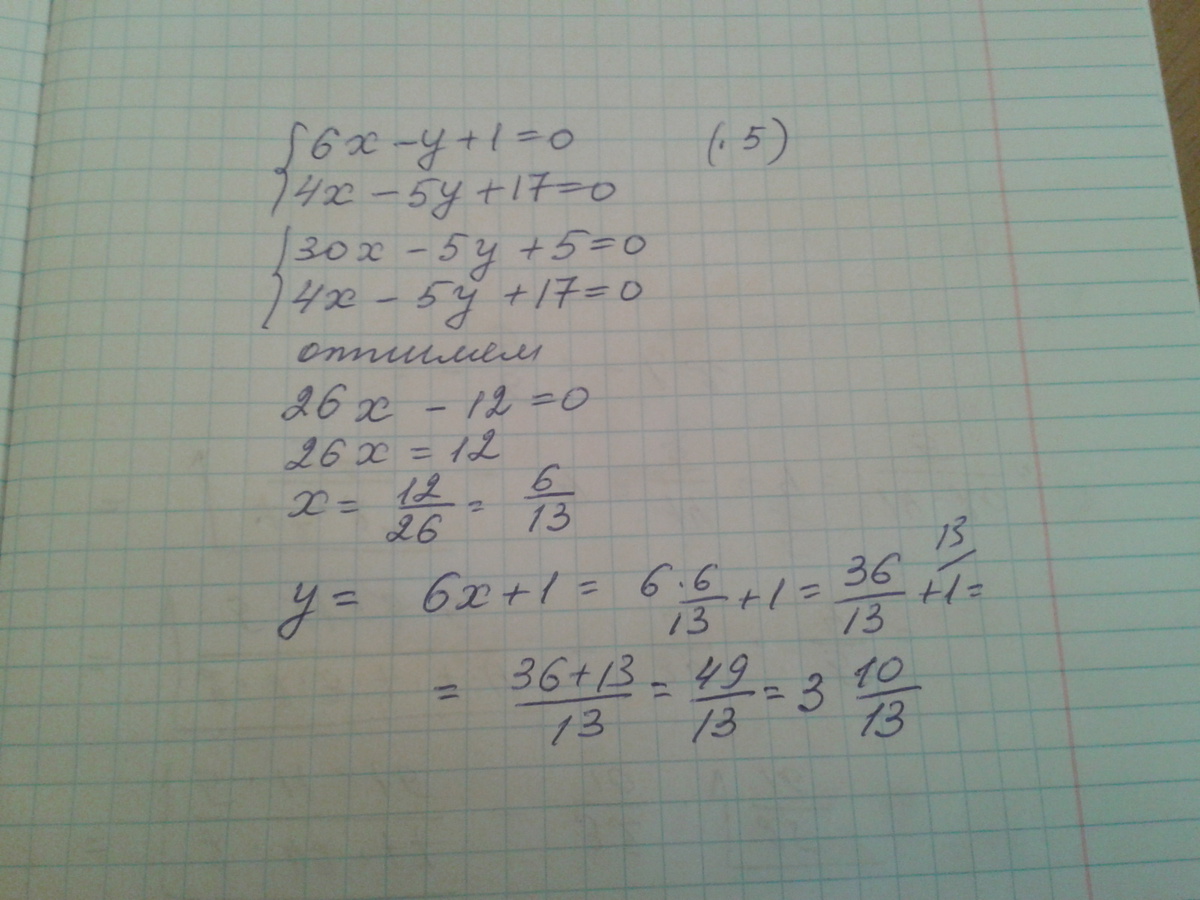 6x - y + 1 = 0 (· 5)
4x - 5y + 17 = 0
30x - 5y + 5 = 0
4x - 5y + 17 = 0
отнимем
26x - 12 = 0
26x = 12
x = 12/26 = 6/13
y = 6x + 1 = 6 · 6/13 + 1 = 36/13 + 1 13/ =
= 36+13/13 = 49/13 = 3 10/13